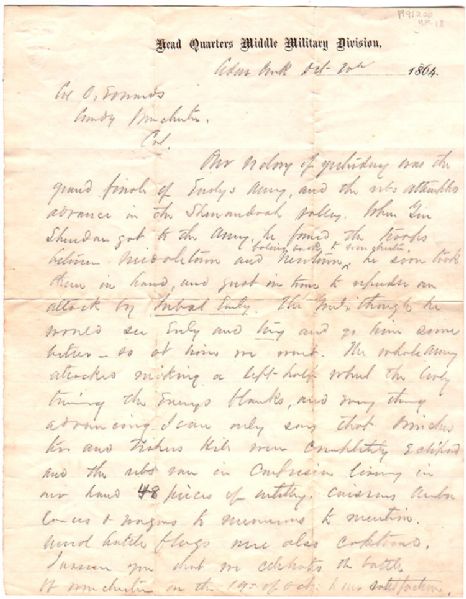 Head Quarters Middle Military Division,
Cedar Creek Oct 20th 1864.
Col O. Edwards
Comdg Winchester.
Col.
Our victory of yesterday was the
grand finale of Earlys Army, and the rebs attempted
advance in the Shenandoah valley. When Gen
Sheridan got to the Army, he found the troops
between Middletown and Newtown, he soon took
falling back to Winchester,
them in hand, and just in time to repulse an
attack by Jubal Early. The Genl. thought he
would see Early and and go him some
better — so at him we went. The whole army
attacked making a left half wheel the Cavly
turning the Enemys flanks, and every thing
advancing. I can only say that Winches
ter and Fishers Hill were completely eclipsed
and the rebs ran in confusion leaving in
our hand 48 pieces of artillery. caissons Ambu
lances & wagons to numerous to mention.
battle flags were also captured.
I assure you that we celebrated the battle
of Winchester on the 19th of Oct. to our satisfaction.